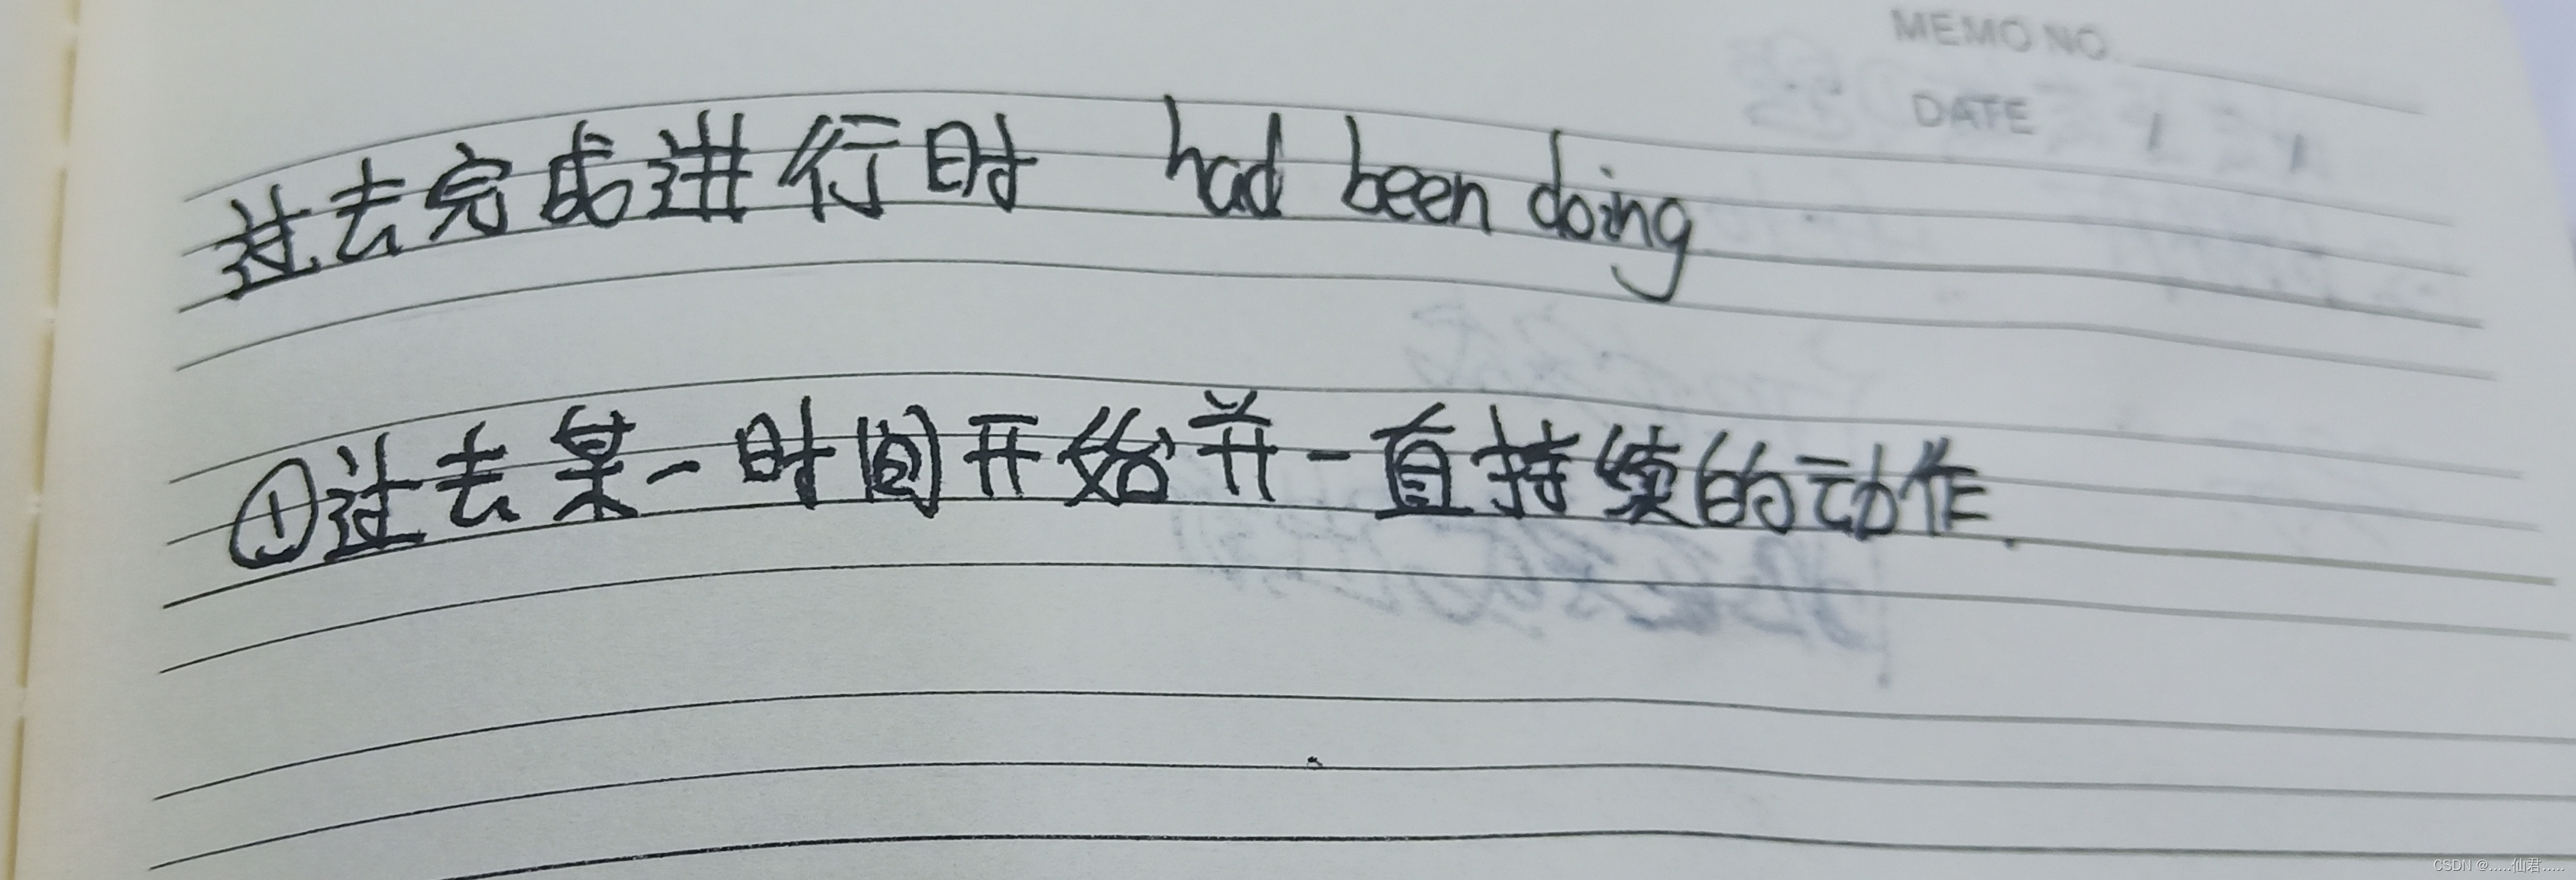 MEMO NO.
DATE
过去完成进行时 had been doing
①过去某一时间开始并一直持续的动作.
CSDN @.....仙君.....